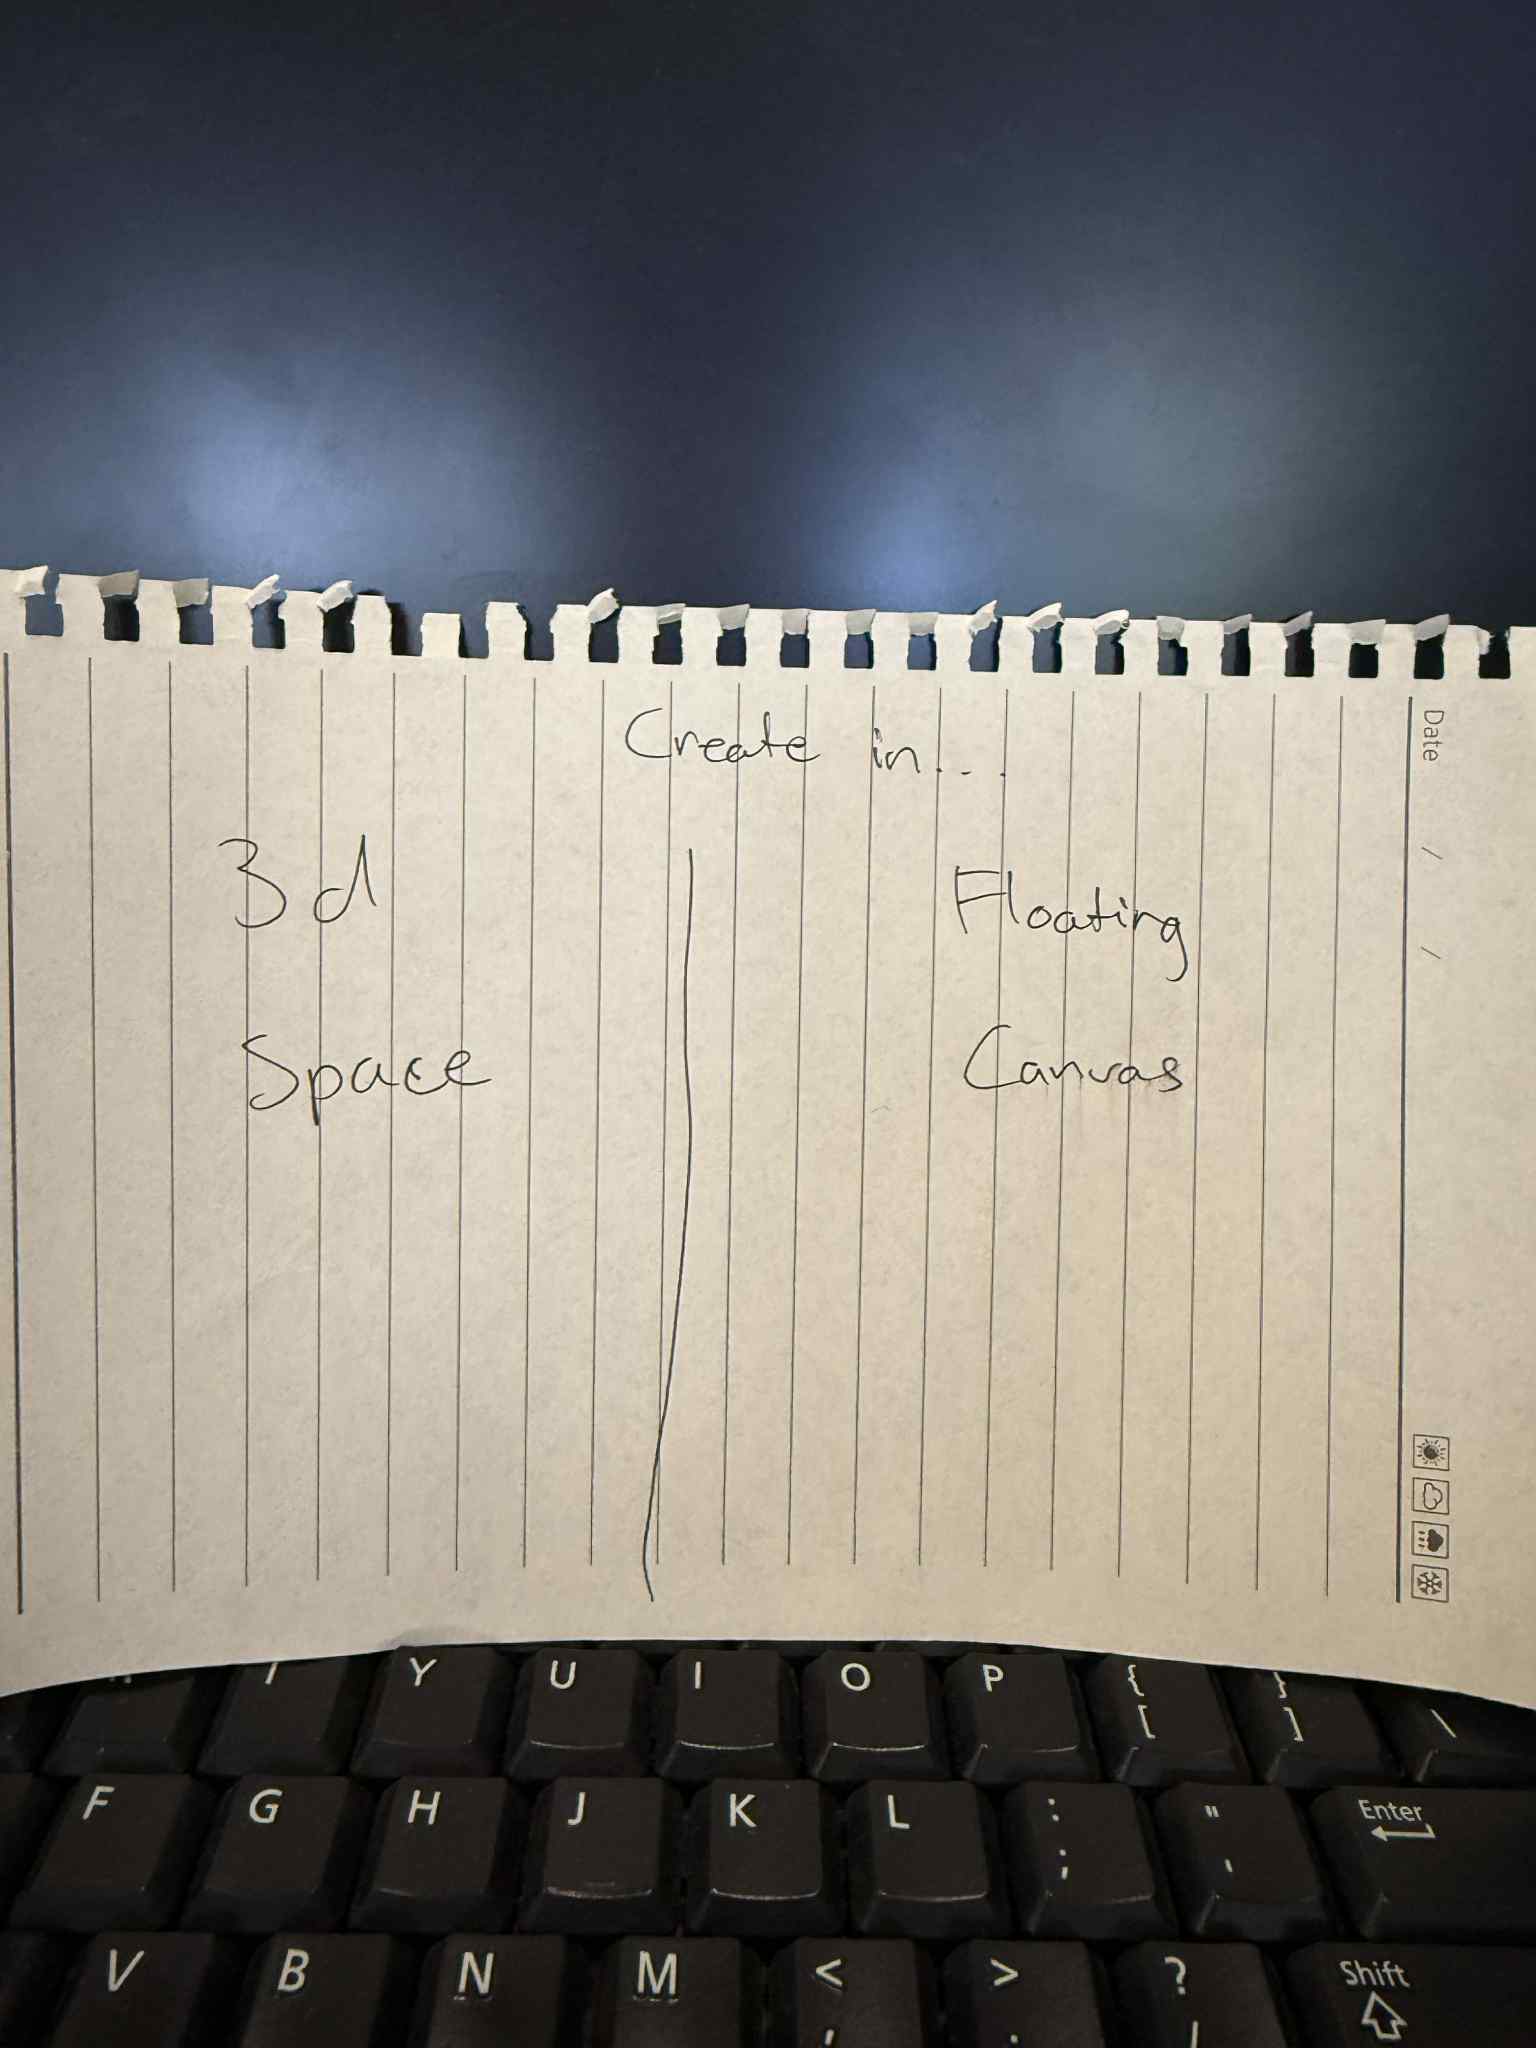 Create in...
3d
Space
Floating
Canvas
Date / /
Y U I O P { [ } ] \
F G H J K L : ; " ' Enter
V B N M < , > . ? / Shift